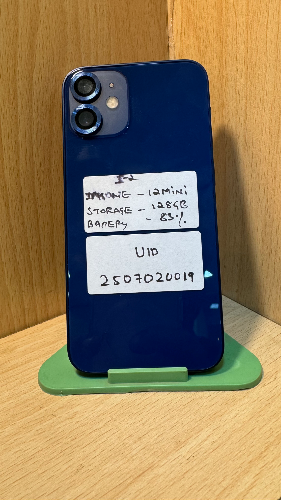 I-2
IPHONE - 12 MINI
STORAGE - 128GB
BATERY - 83%
UID
2507020019